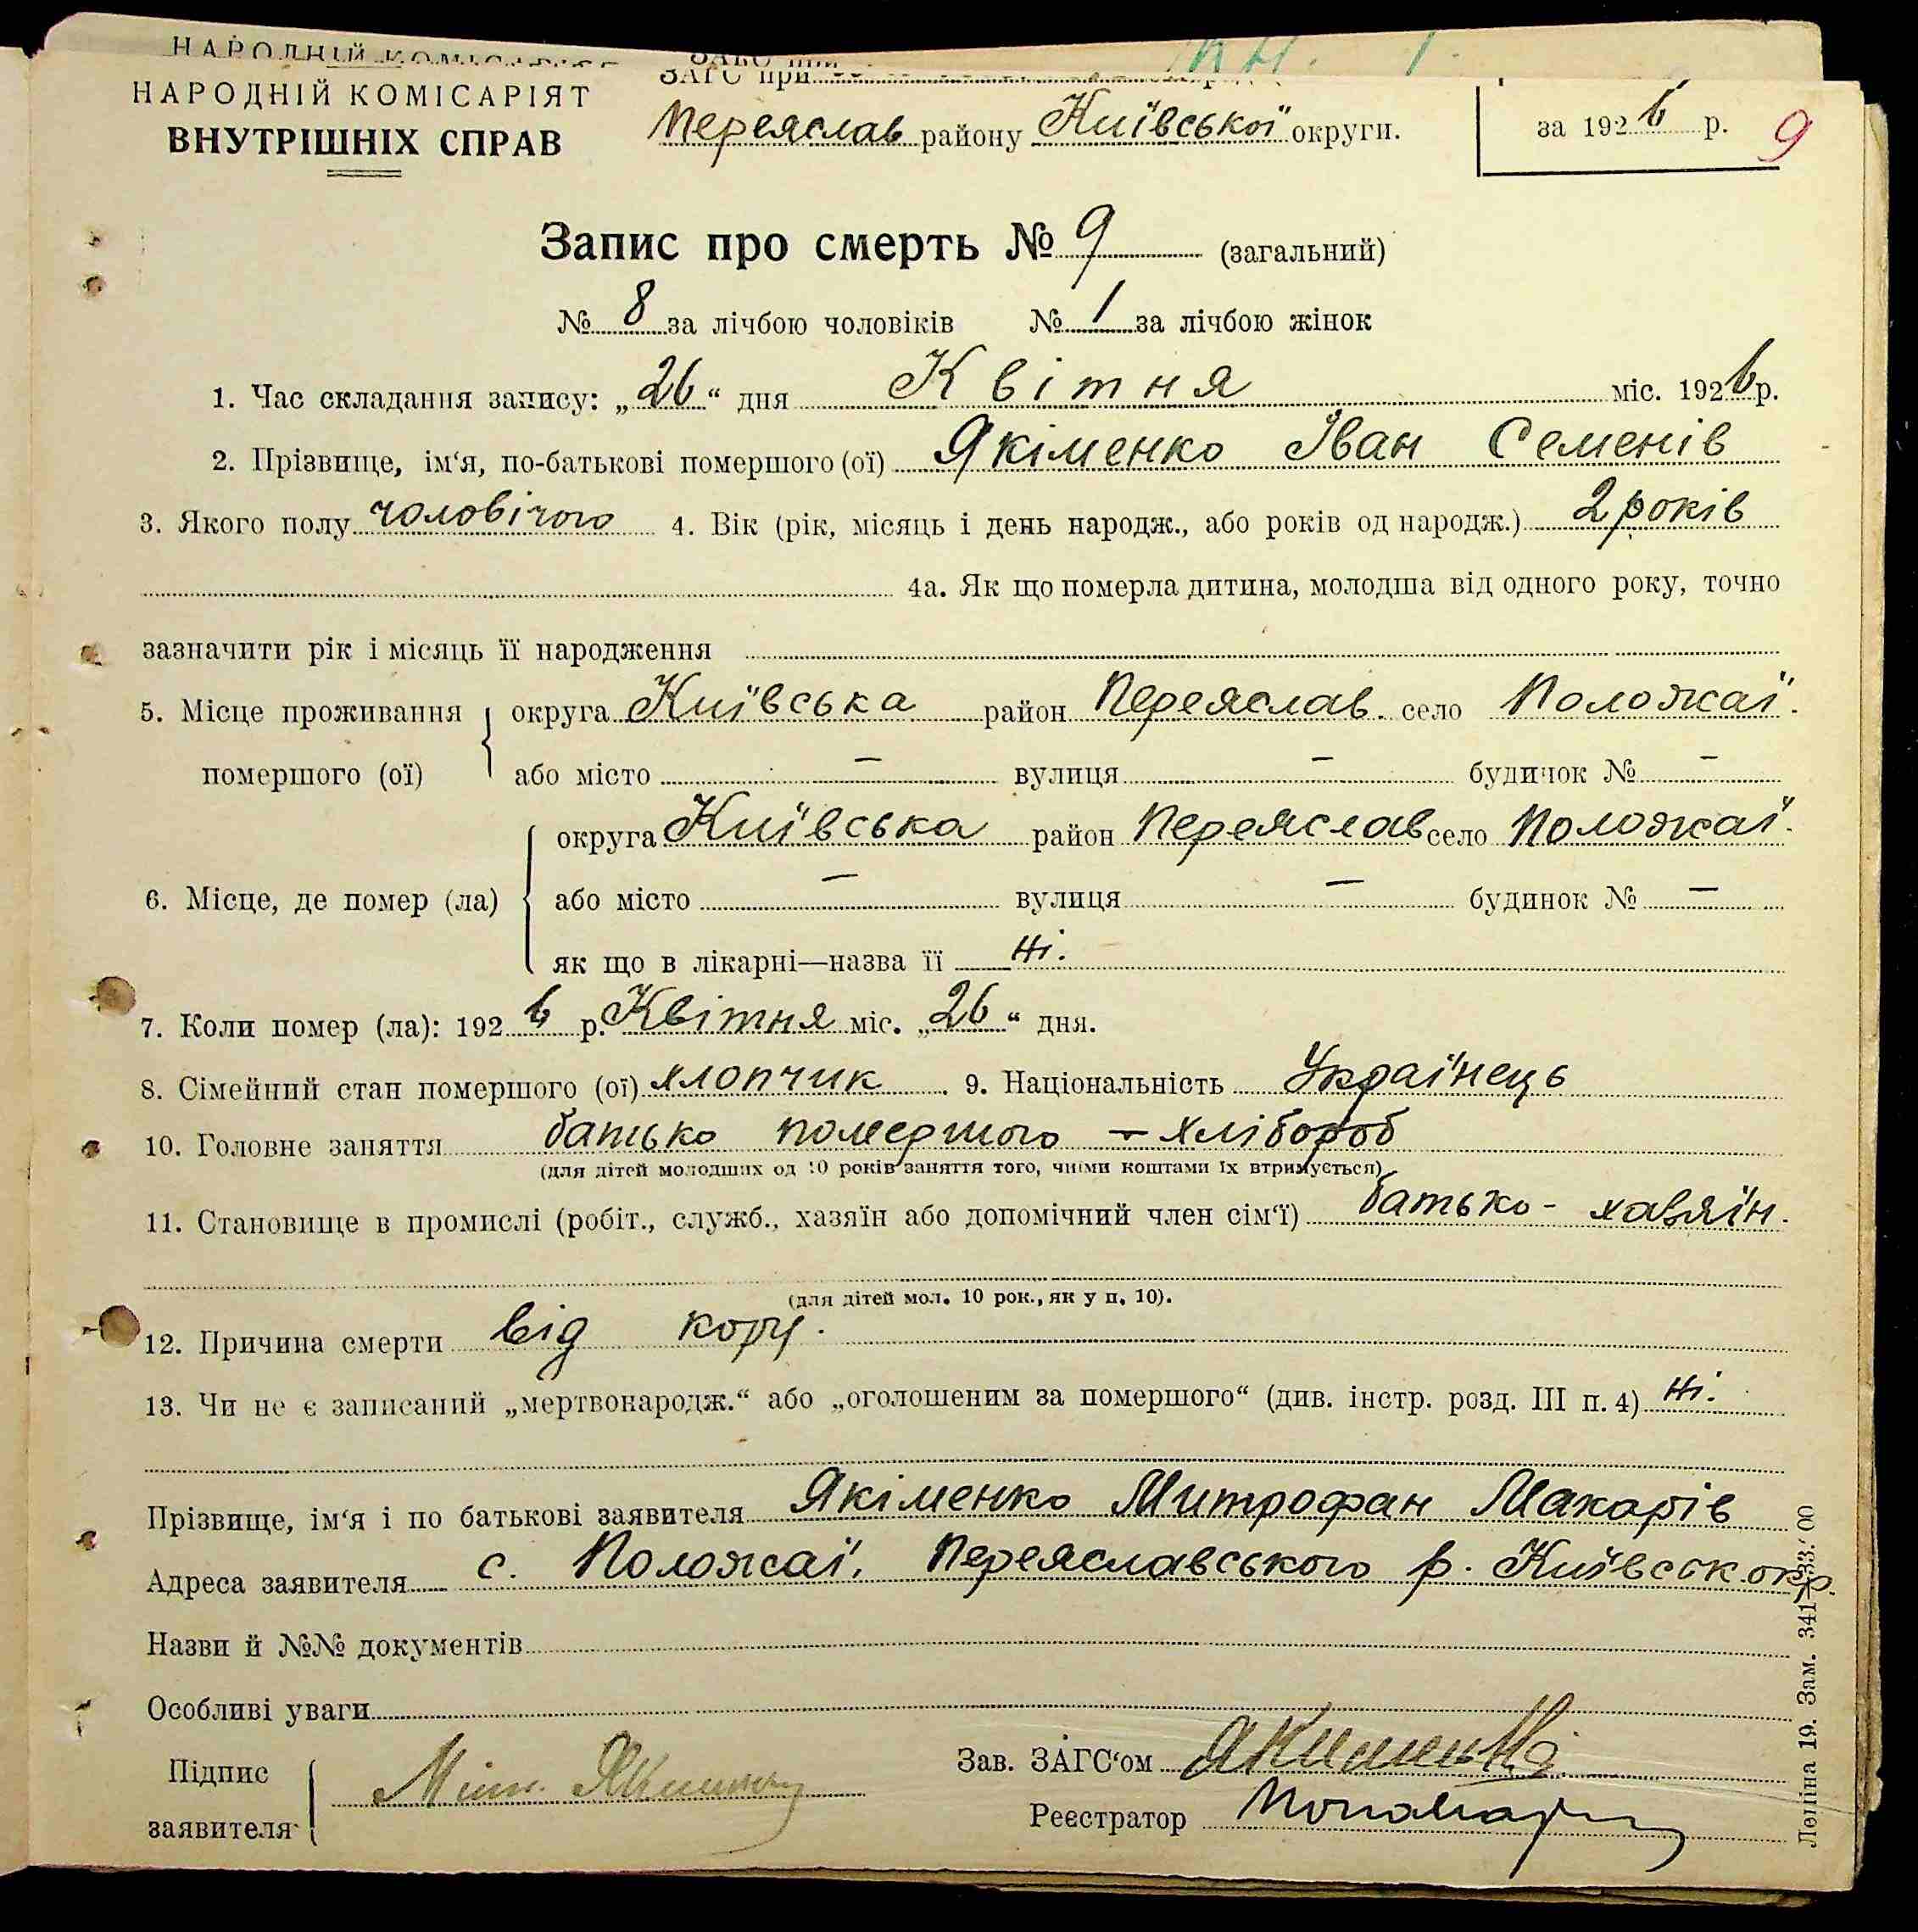 НАРОДНІЙ КОМІСАРІЯТ
ВНУТРІШНІХ СПРАВ
ЗАГС при
Переяслав району Київської округи.
за 1926 р.
9
Запис про смерть № 9 (загальний)
№ 8 за лічбою чоловіків № 1 за лічбою жінок
1. Час складання запису: „26“ дня Квітня міс. 1926 р.
2. Прізвище, ім‘я, по-батькові помершого (ої) Якіменко Іван Семенів
3. Якого полу чоловічого 4. Вік (рік, місяць і день народж., або років од народж.) 2 років
4а. Як що померла дитина, молодша від одного року, точно
зазначити рік і місяць її народження
5. Місце проживання помершого (ої) округа Київська район Переяслав. село Положаї.
або місто — вулиця — будинок № —
6. Місце, де помер (ла) округа Київська район Переяслав село Положаї.
або місто — вулиця — будинок № —
як що в лікарні—назва її Ні.
7. Коли помер (ла): 1926 р. Квітня міс. „26“ дня.
8. Сімейний стан помершого (ої) хлопчик. 9. Національність Українець
10. Головне заняття батько помершого — хлібороб
(для дітей молодших од 10 років заняття того, чиїми коштами їх втримується)
11. Становище в промислі (робіт., служб., хазяїн або допомічний член сім‘ї) батько - хазяїн.
(для дітей мол. 10 рок., як у п. 10).
12. Причина смерти від кору.
13. Чи не є записаний „мертвонародж.“ або „оголошеним за помершого“ (див. інстр. розд. III п. 4) Ні.
Прізвище, ім‘я і по батькові заявителя Якіменко Митрофан Макарів
Адреса заявителя с. Положаї, Переяславського р. Київськ. окр.
Назви й №№ документів
Особливі уваги
Підпис заявителя Мит.
Зав. ЗАГС‘ом Якименко
Реєстратор
Леніна 19. Зам. 341